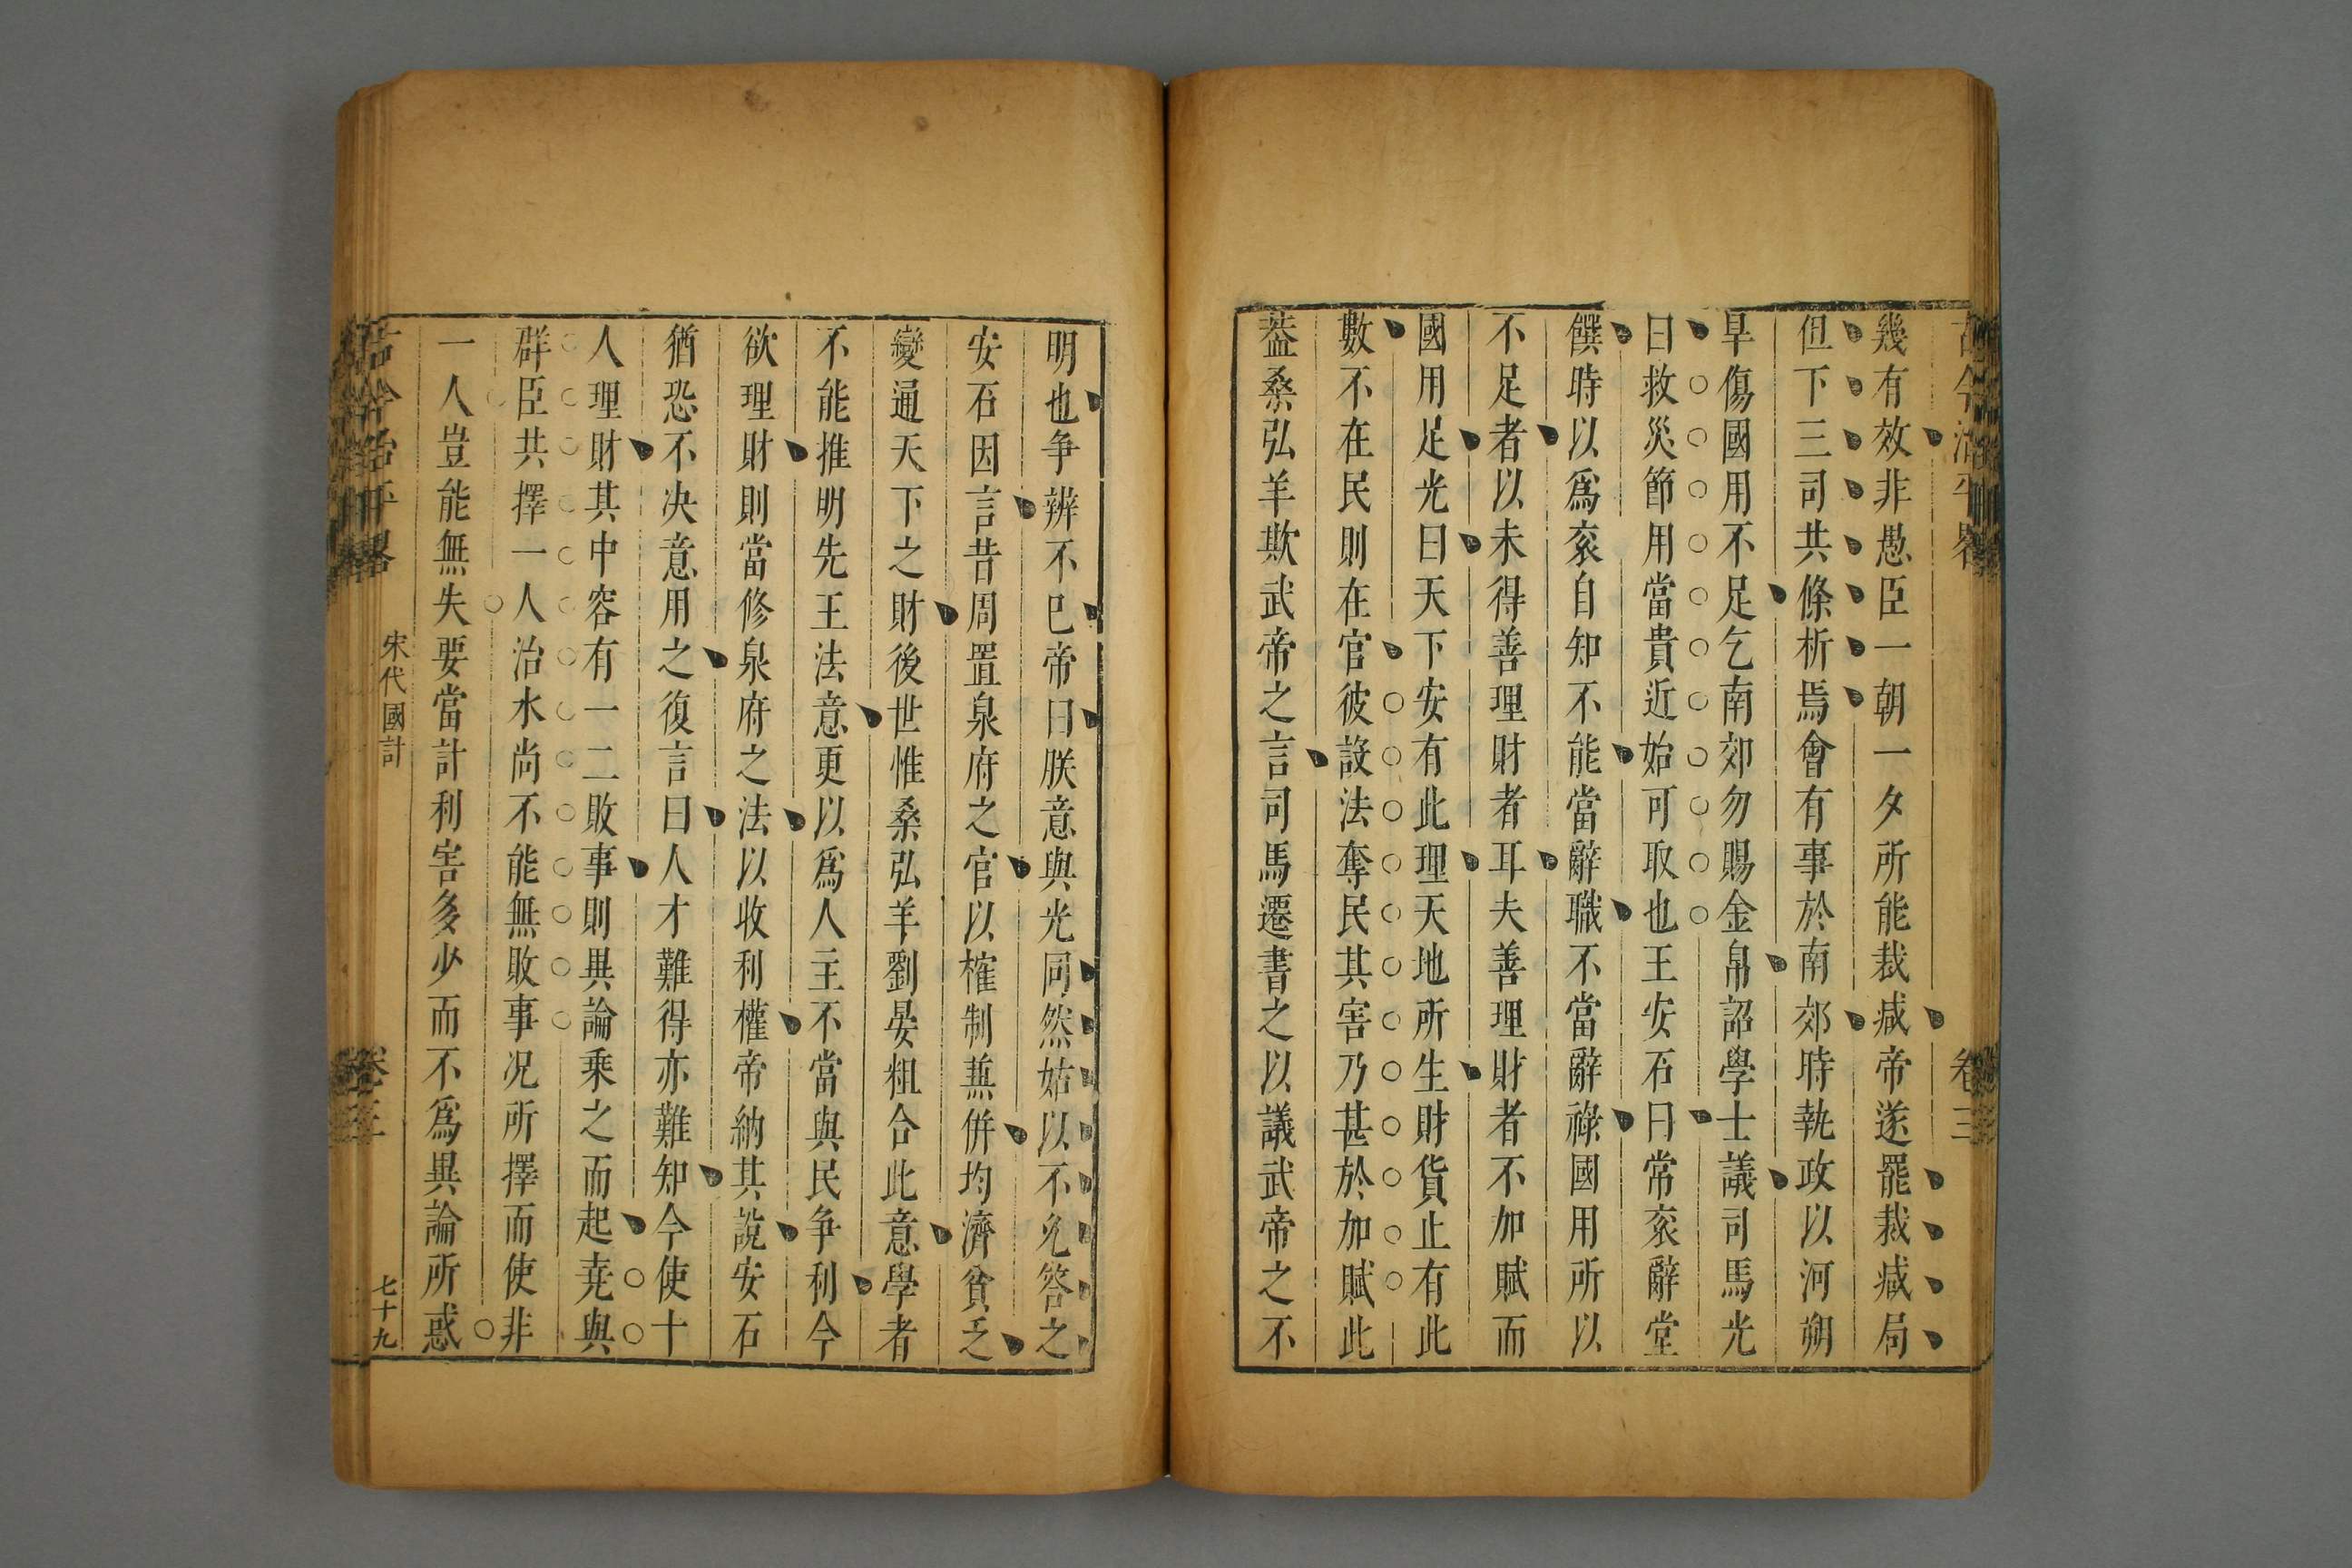 幾有效非愚臣一朝一夕所能裁減帝遂罷裁減局
但下三司共條析焉會有事於南郊時執政以河朔
旱傷國用不足乞南郊勿賜金帛詔學士議司馬光
曰救災節用當貴近始可取也王安石曰常衮辭堂
饌時以爲衮自知不能當辭職不當辭祿國用所以
不足者以未得善理財者耳夫善理財者不加賦而
國用足光曰天下安有此理天地所生財貨止有此
數不在民則在官彼設法奪民其害乃甚於加賦此
葢桑弘羊欺武帝之言司馬遷書之以議武帝之不
明也争辨不巳帝曰朕意與光同然姑以不允答之
安石因言昔周置泉府之官以榷制兼併均濟貧乏
變通天下之財後世惟桑弘羊劉晏粗合此意學者
不能推明先王法意更以爲人主不當與民争利今
欲理財則當修泉府之法以收利權帝納其說安石
猶恐不决意用之復言曰人才難得亦難知今使十
人理財其中容有一二敗事則異論乗之而起尭與
群臣共擇一人治水尚不能無敗事况所擇而使非
一人豈能無失要當計利害多少而不爲異論所惑
古今治平畧
宋代國計
卷三
七十九